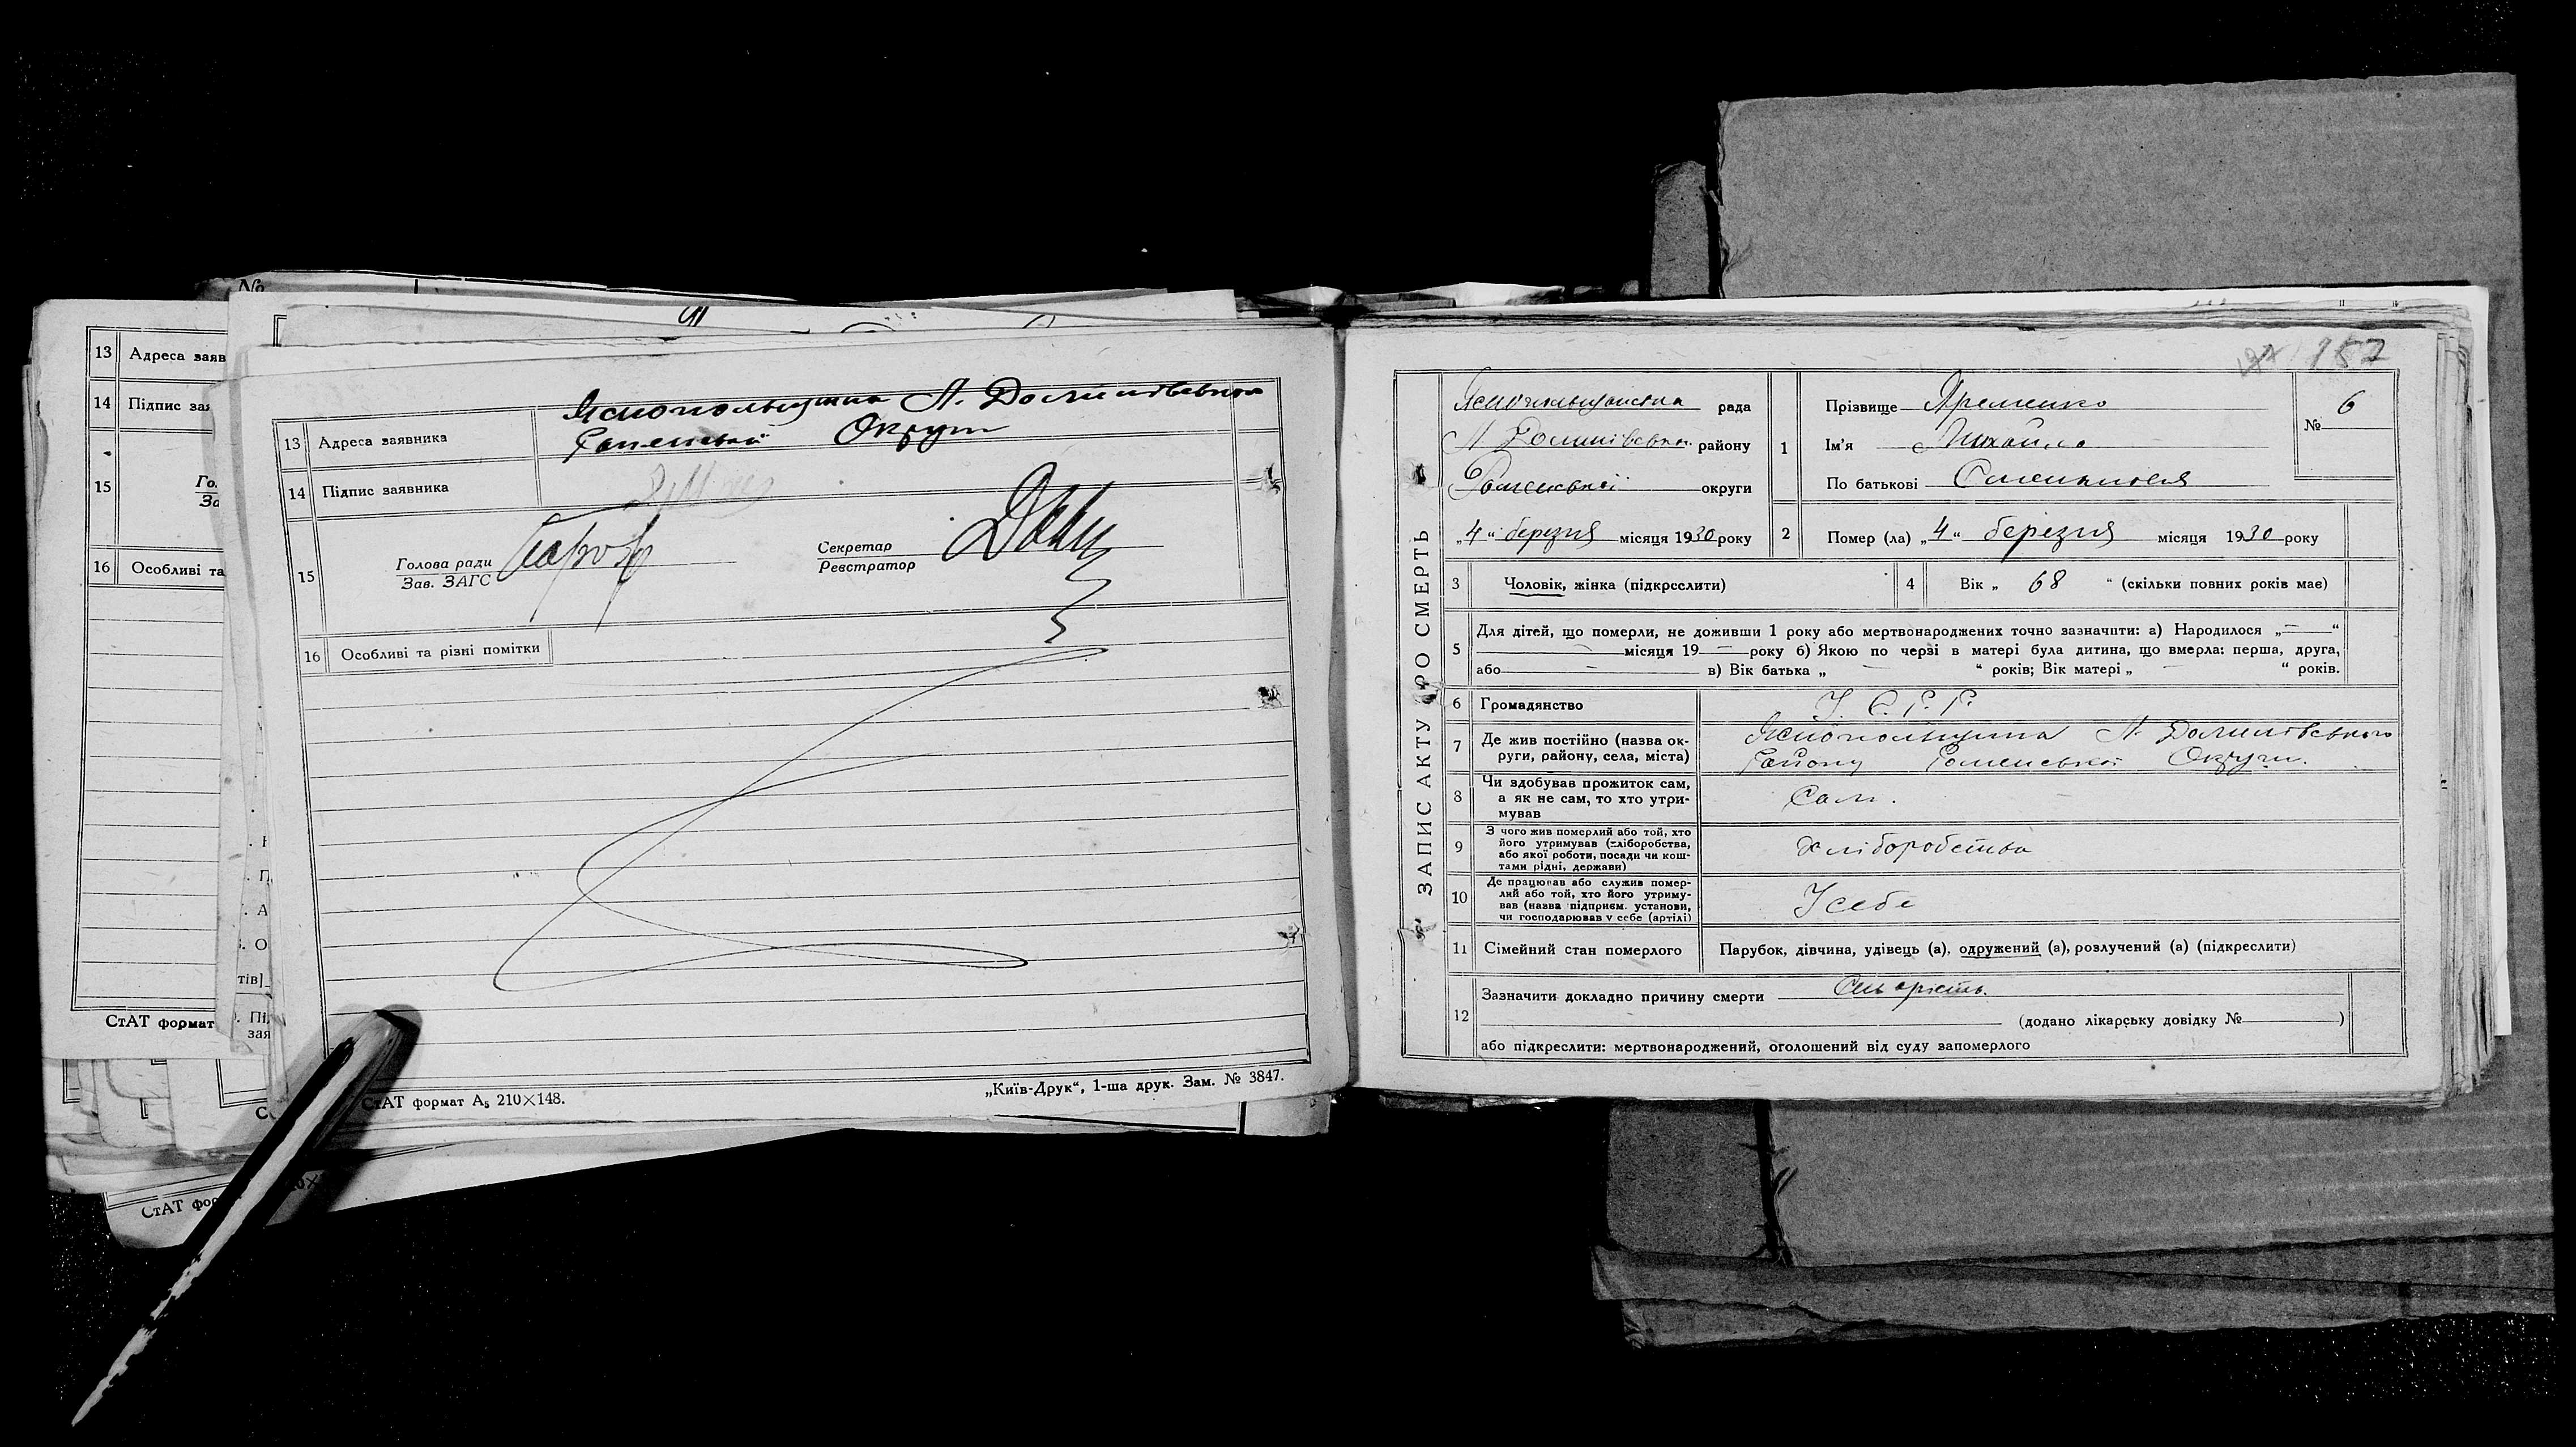 №
13 Адреса заяв
14 Підпис зая
15 Го
За
16 Особливі та
СтАТ формат
СтАТ фор
13 Адреса заявника Яснопольщина Л. Долинівського
Роменської Округи
14 Підпис заявника
15 Голова ради
Зав. ЗАГС
Секретар
Реєстратор
16 Особливі та різні помітки
СтАТ формат А₅ 210×148.
„Київ-Друк“, 1-ша друк. Зам. № 3847.
157
ЗАПИС АКТУ ПРО СМЕРТЬ
Яснопольщанська рада
Л Долинівськ. району
Роменської округи
„4“ березня місяця 1930 року
1 Прізвище Яременко
Ім'я Михайло
По батькові
№ 6
2 Помер (ла) „4“ березня місяця 1930 року
3 Чоловік, жінка (підкреслити)
4 Вік „ 68 “ (скільки повних років має)
5 Для дітей, що померли, не доживши 1 року або мертвонароджених точно зазначити: а) Народилося „—“
— місяця 19 — року б) Якою по черзі в матері була дитина, що вмерла: перша, друга,
або — в) Вік батька „ — “ років; Вік матері „ — “ років.
6 Громадянство У. С. Р. Р.
7 Де жив постійно (назва ок-
руги, району, села, міста)
Яснопольщина Л. Долинівського
Району Роменської Округи.
8 Чи здобував прожиток сам,
а як не сам, то хто утри-
мував
Сам.
9 З чого жив померлий або той, хто
його утримував (хліборобства,
або якої роботи, посади чи кош-
тами рідні, держави)
Хліборобства
10 Де працював або служив помер-
лий або той, хто його утриму-
вав (назва підприєм. установи,
чи господарював у себе (артілі)
У себе
11 Сімейний стан померлого Парубок, дівчина, удівець (а), одружений (а), розлучений (а) (підкреслити)
12 Зазначити докладно причину смерти Старість.
(додано лікарську довідку № )
або підкреслити: мертвонароджений, оголошений від суду запомерлого